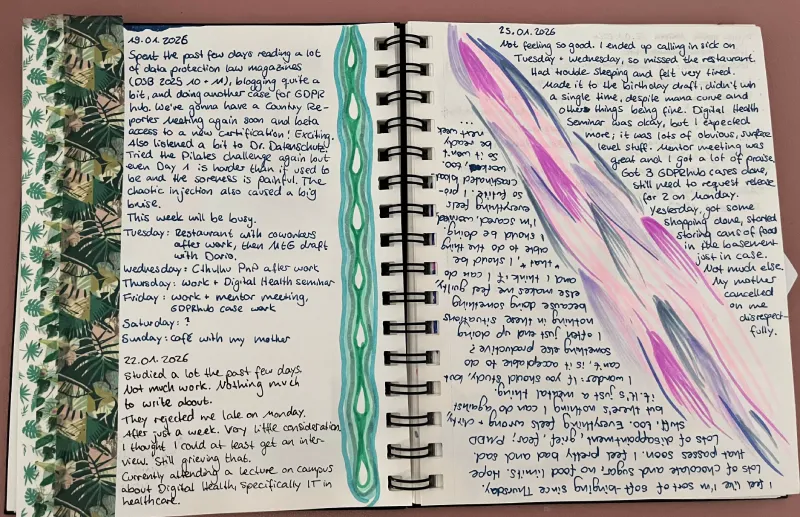 19.01.2026
Spent the past few days reading a lot
of data protection law magazines
(DSB 2025 10 + 11), blogging quite a
bit, and doing another case for GDPR
hub. We're gonna have a Country Re-
porter Meeting again soon and beta
access to a new Certification! Exciting.
Also listened a bit to Dr. Datenschutz.
Tried the Pilates challenge again but
even Day 1 is harder than it used to
be and the soreness is painful. The
chaotic injection also caused a big
bruise.
This week will be busy.
Tuesday: Restaurant with coworkers
after work, then MtG draft
with Dario.
Wednesday: Cthulhu PnP after work
Thursday: work + Digital Health seminar
Friday: work + mentor meeting,
GDPRhub case work
Saturday: ?
Sunday: café with my mother
22.01.2026
Studied a lot the past few days.
Not much work. Nothing much
to write about.
They rejected me late on Monday.
After just a week. Very little consideration.
I thought I could at least get an inter-
view. Still grieving that.
Currently attending a lecture on campus
about Digital Health, specifically IT in
healthcare.
25.01.2026
Not feeling so good. I ended up calling in sick on
Tuesday + Wednesday, so missed the restaurant.
Had trouble sleeping and felt very tired.
Made it to the birthday draft, didn't win
a single time, despite mana curve and
other things being fine. Digital Health
Seminar was okay, but I expected
more; it was lots of obvious, surface
level stuff. Mentor meeting was
great and I got a lot of praise.
Got 3 GDPRhub cases done,
still need to request release
for 2 on Monday.
Yesterday, got some
shopping done, started
storing cans of food
in the basement
just in case.
Not much else.
My mother
cancelled
on me
disrespect-
fully.
I feel like I'm sort of soft-binging since Thursday.
Lots of chocolate and sugar, no food limits. Hope
that passes soon. I feel pretty bad and sad.
Lots of disappointment, grief, fear; PMDD
stuff, too. Everything feels wrong + dirty,
but there's nothing I can do against
it. It's just a mental thing.
I wonder: If you should study, but
can't, is it acceptable to do
something else productive?
I often just end up doing
nothing in these situations
because doing something
else makes me feel guilty,
and I think: if I can do
*that*, I should be
able to do the thing
I should be doing.
I'm scared, worried,
everything feels
so futile. I pro-
crastinated blog.
too.
So it won't
be ready
next week
...